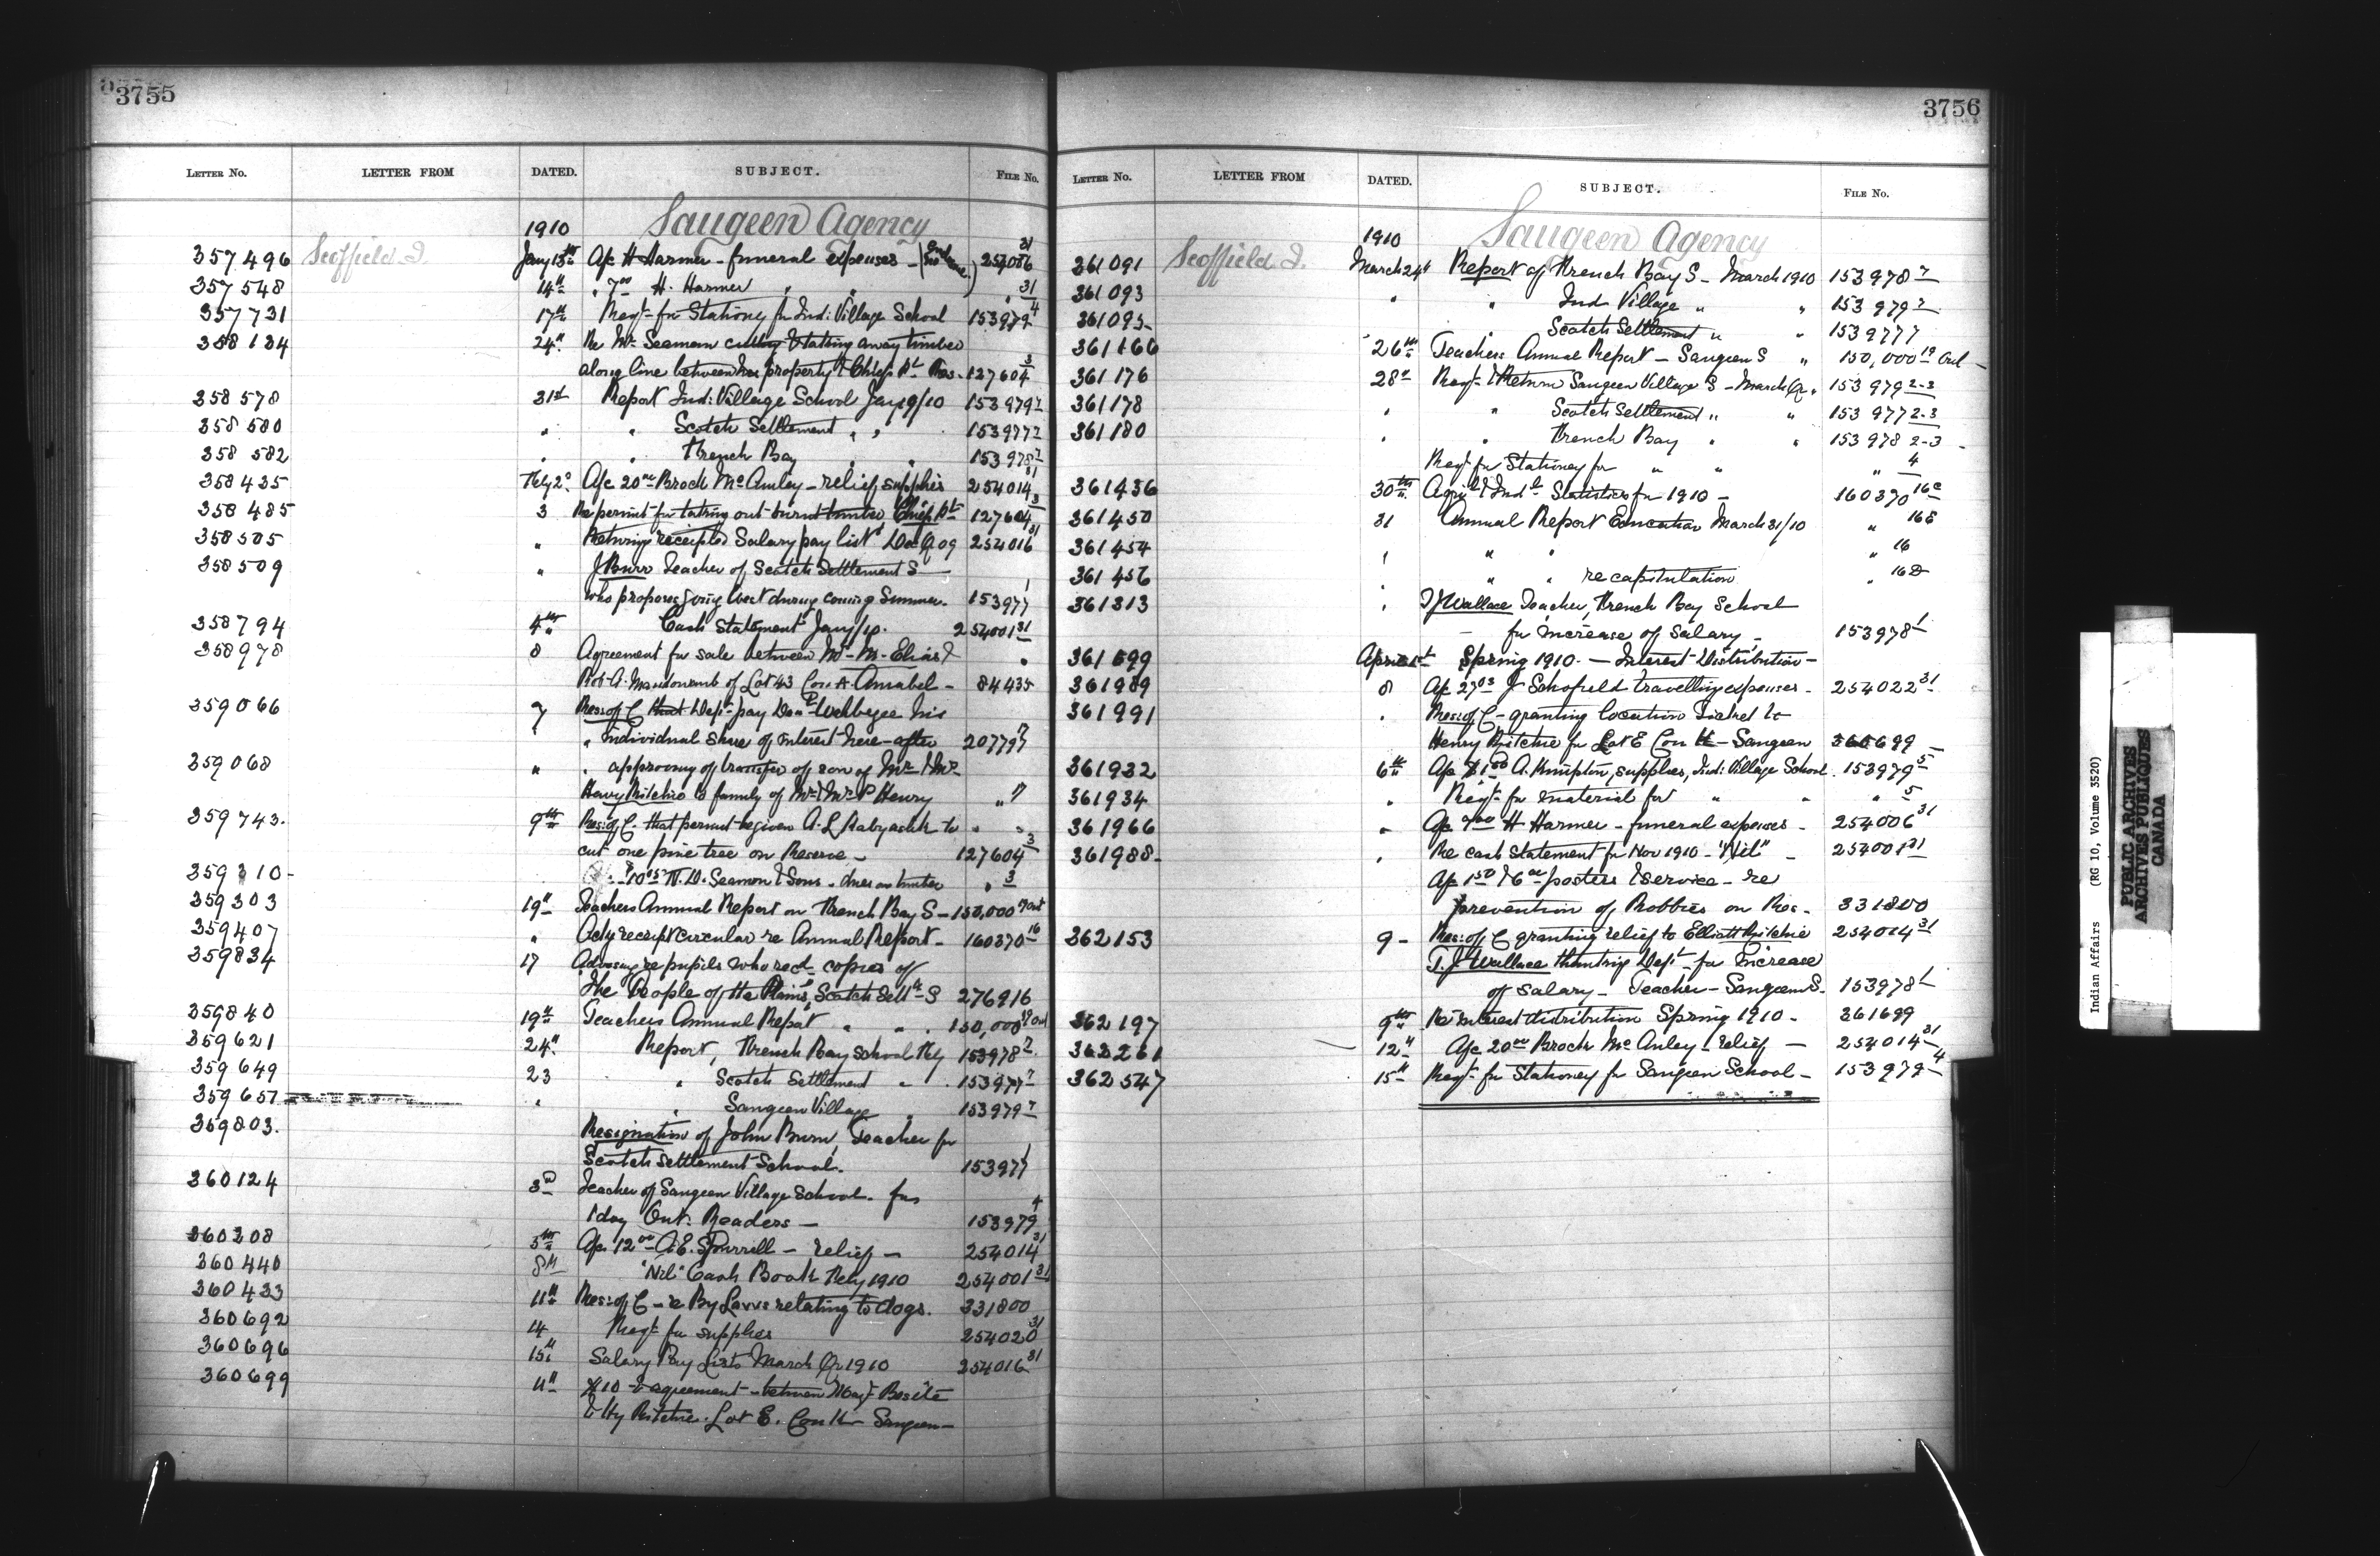 3755
LETTER NO. LETTER FROM DATED. SUBJECT. FILE NO.
1910 Saugeen Agency
357496 Scoffield J. Jany 13th A/c H Harmer - funeral expenses - 254006 31
357548 14" " 7 00 H. Harmer " " " 31
357731 17" Reqt for Stationy for Ind: Village School 153979 4
358134 24" Re Mr Seamon cutting & taking away timber
along line between his property & Chiefs Pt Res. 127604 3
358578 31st Report Ind: Village School Jany 9/10 153979 7
358580 " " Scotch Settlement " " 153977 7
358582 " " French Bay " " 153978 7
358435 Feby 2d A/c 20 00 Brock McAuley - relief supplies 254014 31
358485 3 Re permit for taking out burnt timber Chiefs Pt 127604 3
358505 " Returning receipted Salary pay lists Dec Q 09 254016 31
358509 " J Burr Teacher of Scotch Settlement S
who proposes going West during coming Summer. 153977 1
358794 4th Cash Statement Jany/10. 254001 31
358978 8 Agreement for sale between Mr M. Elias &
of Lot 43 Con A. Amabel - 84435
359066 7 Res: of C that Dept pay his
" individual share of interest here-after 207797 7
359068 " " approving of transfer of son of Mr & Mrs
Henry Ritchie to family of Mr & Mrs P Henry " 7
359743. 9th Res: of C. that permit be given A. L to
cut one pine tree on Reserve - 127604 3
359310- $10 05 N. D. Seamon & Sons - dues on timber " 3
359303 19" Teachers Annual Report on French Bay S - 150,000 19 Ont
359407 " Ackg receipt circular re Annual Report - 160370 16
359834 17 Advising re pupils who recd copies of
"The People of the Plains, Scotch Settlt S 276916
359840 19th Teachers Annual Report " " 150,000 19 Ont
359621 24" Report, French Bay School Feby 153978 7
359649 23 " Scotch Settlement " 153977 7
359657 " " Saugeen Village " 153979 7
359803. Resignation of John Burr, Teacher for
Scotch Settlement School. 153977 1
360124 3d Teacher of Saugeen Village School. for
1 day Ont. Readers - 153979 4
360308 5th A/c 12 00 A. E. Spurrell - relief - 254014 31
360440 8th "Nil" Cash Book Feby 1910 254001 31
360433 11th Res: of C - re By Laws relating to dogs. 331800
360692 14 Reqt for supplies 254020 31
360696 15th Salary Pay Lists March Qr 1910 254016 31
360699 11th $10 & agreement - between
& Hy Ritchie. Lot E. Con Saugeen -
3756
LETTER NO. LETTER FROM DATED. SUBJECT. FILE NO.
1910 Saugeen Agency
361091 Scoffield J. March 24th Report of French Bay S - March 1910 153978 7
361093 " " Ind Village " " 153979 7
361095 Scotch Settlement " " 153977 7
361166 26th Teachers Annual Report - Saugeen S " 150,000 19 Ont -
361176 28th Reqt & Return Saugeen Village S - March Qr. 153979 2-3
361178 " " Scotch Settlement " " 153977 2-3
361180 " " French Bay " " 153978 2-3
Reqt for Stationey for " " " 4
361436 30th Agricl & Indl Statistics for 1910 - 160370 16c
361450 31 Annual Report Education March 31/10 " 16E
361454 " " " " 16
361456 " " " recapitulation " 16D
361313 " T J Wallace Teacher, French Bay School
- for increase of Salary - 153978 1
361699 April 1st Spring 1910. - Interest Distribution -
361989 8 A/c 27 03 J Schofield travelling expenses - 254022 31
361991 " Res: of C - granting location Ticket to
Henry Ritchie for Lot E Con - Saugeen 360699 -
361932 6th A/c A. Kimpton, supplies, Ind: Village School. 153979 5
361934 " Reqt for material for " " " 5
361966 " A/c 7 00 H Harmer - funeral expenses - 254006 31
361988- " Re cash statement for Nov 1910 - "Nil" - 254001 31
A/c 1 50 & 6 00 posters & service - re
prevention of Rabbies on Res - 331800
362153 9 - Res: of C granting relief to Elliott Ritchie 254014 31
T. J Wallace thanking Dept for Increase
of Salary - Teacher - Saugeen S. 153978 1
362197 9th Re interest distribution Spring 1910 - 361699
362261 12" A/c 20 00 Brock McAuley - relief - 254014 31
362547 15th Reqt for Stationey for Saugeen School - 153979 4
Indian Affairs (RG 10, Volume 3520)
PUBLIC ARCHIVES
ARCHIVES PUBLIQUES
CANADA